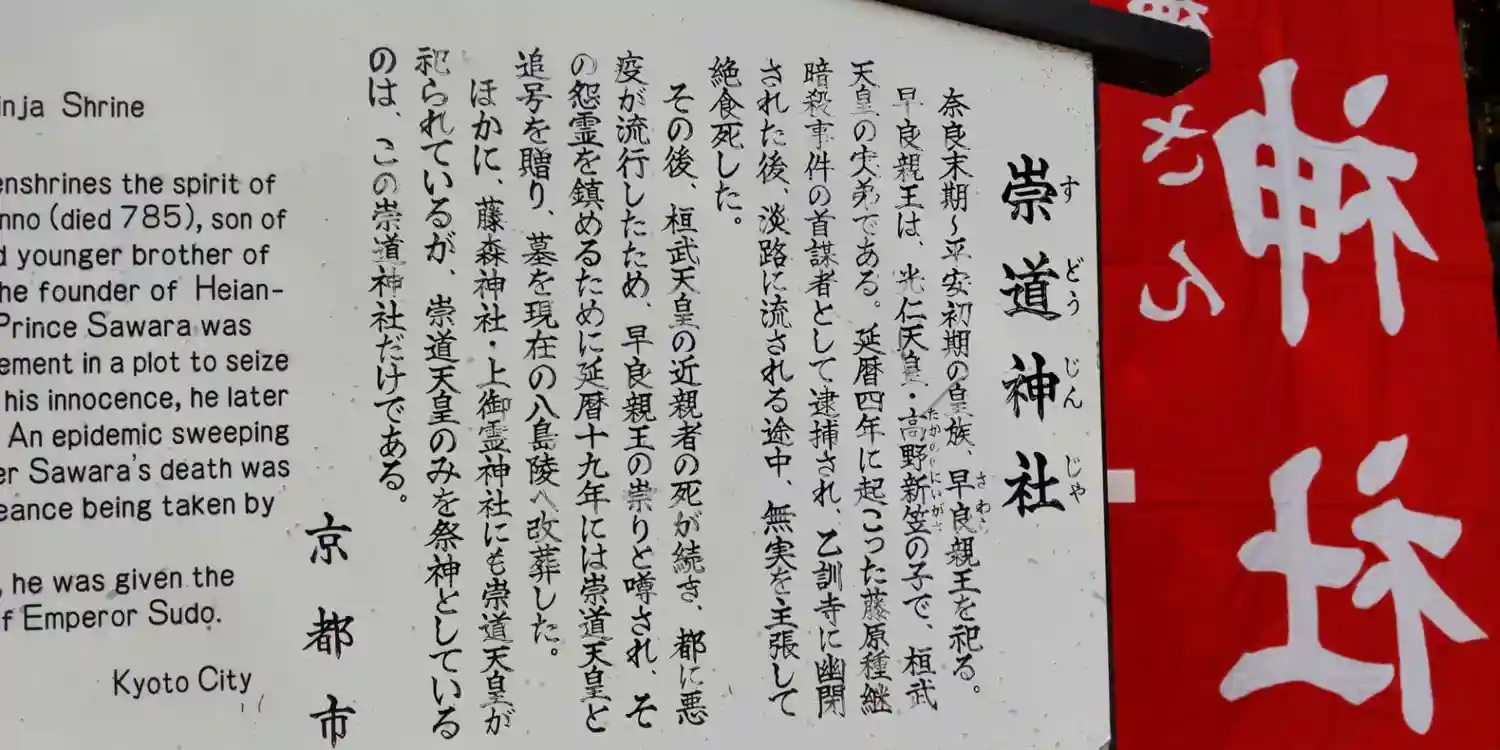 崇道神社
すどうじんじゃ
奈良末期～平安初期の皇族、早良親王を祀る。
さわら
早良親王は、光仁天皇・高野新笠の子で、桓武
たかののにいがさ
天皇の実弟である。延暦四年に起こった藤原種継
暗殺事件の首謀者として逮捕され、乙訓寺に幽閉
された後、淡路に流される途中、無実を主張して
絶食死した。
その後、桓武天皇の近親者の死が続き、都に悪
疫が流行したため、早良親王の祟りと噂され、そ
の怨霊を鎮めるために延暦十九年には崇道天皇と
追号を贈り、墓を現在の八島陵へ改葬した。
ほかに、藤森神社・上御霊神社にも崇道天皇が
祀られているが、崇道天皇のみを祭神としている
のは、この崇道神社だけである。
京都市
inja Shrine
enshrines the spirit of
nno (died 785), son of
d younger brother of
he founder of Heian-
Prince Sawara was
ement in a plot to seize
his innocence, he later
An epidemic sweeping
er Sawara's death was
eance being taken by
, he was given the
f Emperor Sudo.
Kyoto City
神社
さん